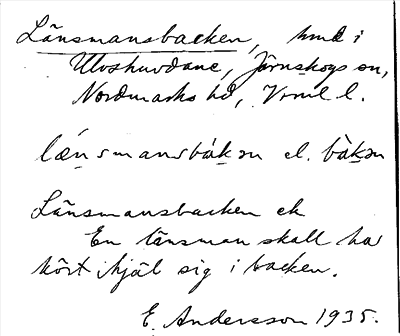 Länsmansbacken, hmd i
Ulvshuvdane, Järnskogs sn,
Nordmarks hd, Vrml l.
länsmansbàkən el. bàkən
Länsmansbacken ek
En länsman skall ha
kört ihjäl sig i backen.
E. Andersson 1935.